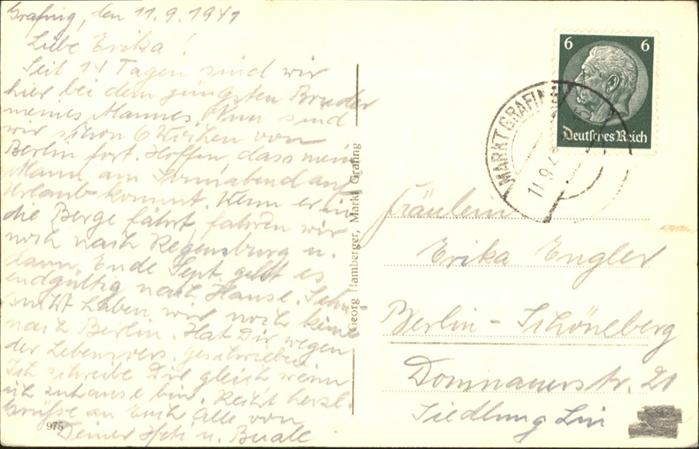 Grafing, den 11.9.1941
Liebe Erika!
Seit 14 Tagen sind wir
hier bei dem jüngsten Bruder
meines Mannes. Nun sind
wir schon 6 Wochen von
Berlin fort. Hoffen, dass mein
Mann am Sonnabend auf
Urlaub kommt. Wenn er in
die Berge fährt, fahren wir
noch nach Regensburg u.
dann Ende Sept. geht es
endgültig nach Hause. Sehn-
sucht haben wir noch keine
nach Berlin. Hat Dir wegen
der Lebensvers. geschrieben
Ich schreibe Dir gleich wenn
ich zuhause bin. Recht herzl.
Grüße an Euch Alle von
Deiner u.
975
Georg Hamberger, Markt Grafing
6 6
Deutsches Reich
MARKT GRAFING
11.9.4
Fräulein
Erika Engler
Berlin-Schöneberg
Domnauerstr. 21
Siedlung